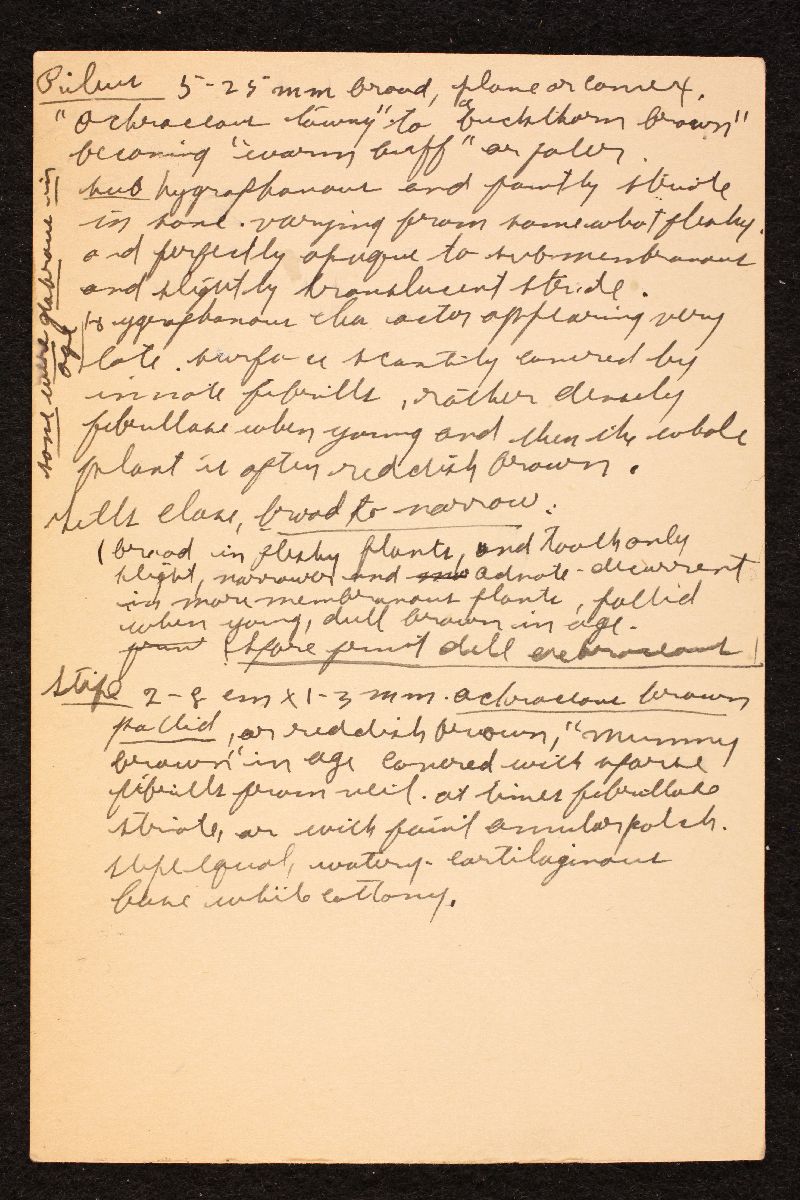 Pileus 5-25 mm broad, plane or convex,
"ochraceous tawny" to "buckthorn brown"
becoming "warm buff" or paler.
sub hygrophanous and faintly striate
in some. varying from somewhat fleshy.
and perfectly opaque to submembranous
and slightly translucent striate.
Hygrophanous character appearing very
late. surface scantily covered by
innate fibrills, rather densely
fibrillose when young and then the whole
plant is often reddish brown.
some were glabrous in
age
Gills close, broad to narrow.
(broad in fleshy plants, and tooth only
slight, narrower and adnate-decurrent
in more membranous plants, pallid
when young, dull brown in age.
print (spore print dull ochraceous)
Stipe 2-8 cm x 1-3 mm. ochraceous brown
pallid, or reddish brown, "mummy
brown" in age covered with sparse
fibrills from veil. at times fibrillose
striate, or with faint annular patch.
stipe equal, watery-cartilaginous
base white cottony.